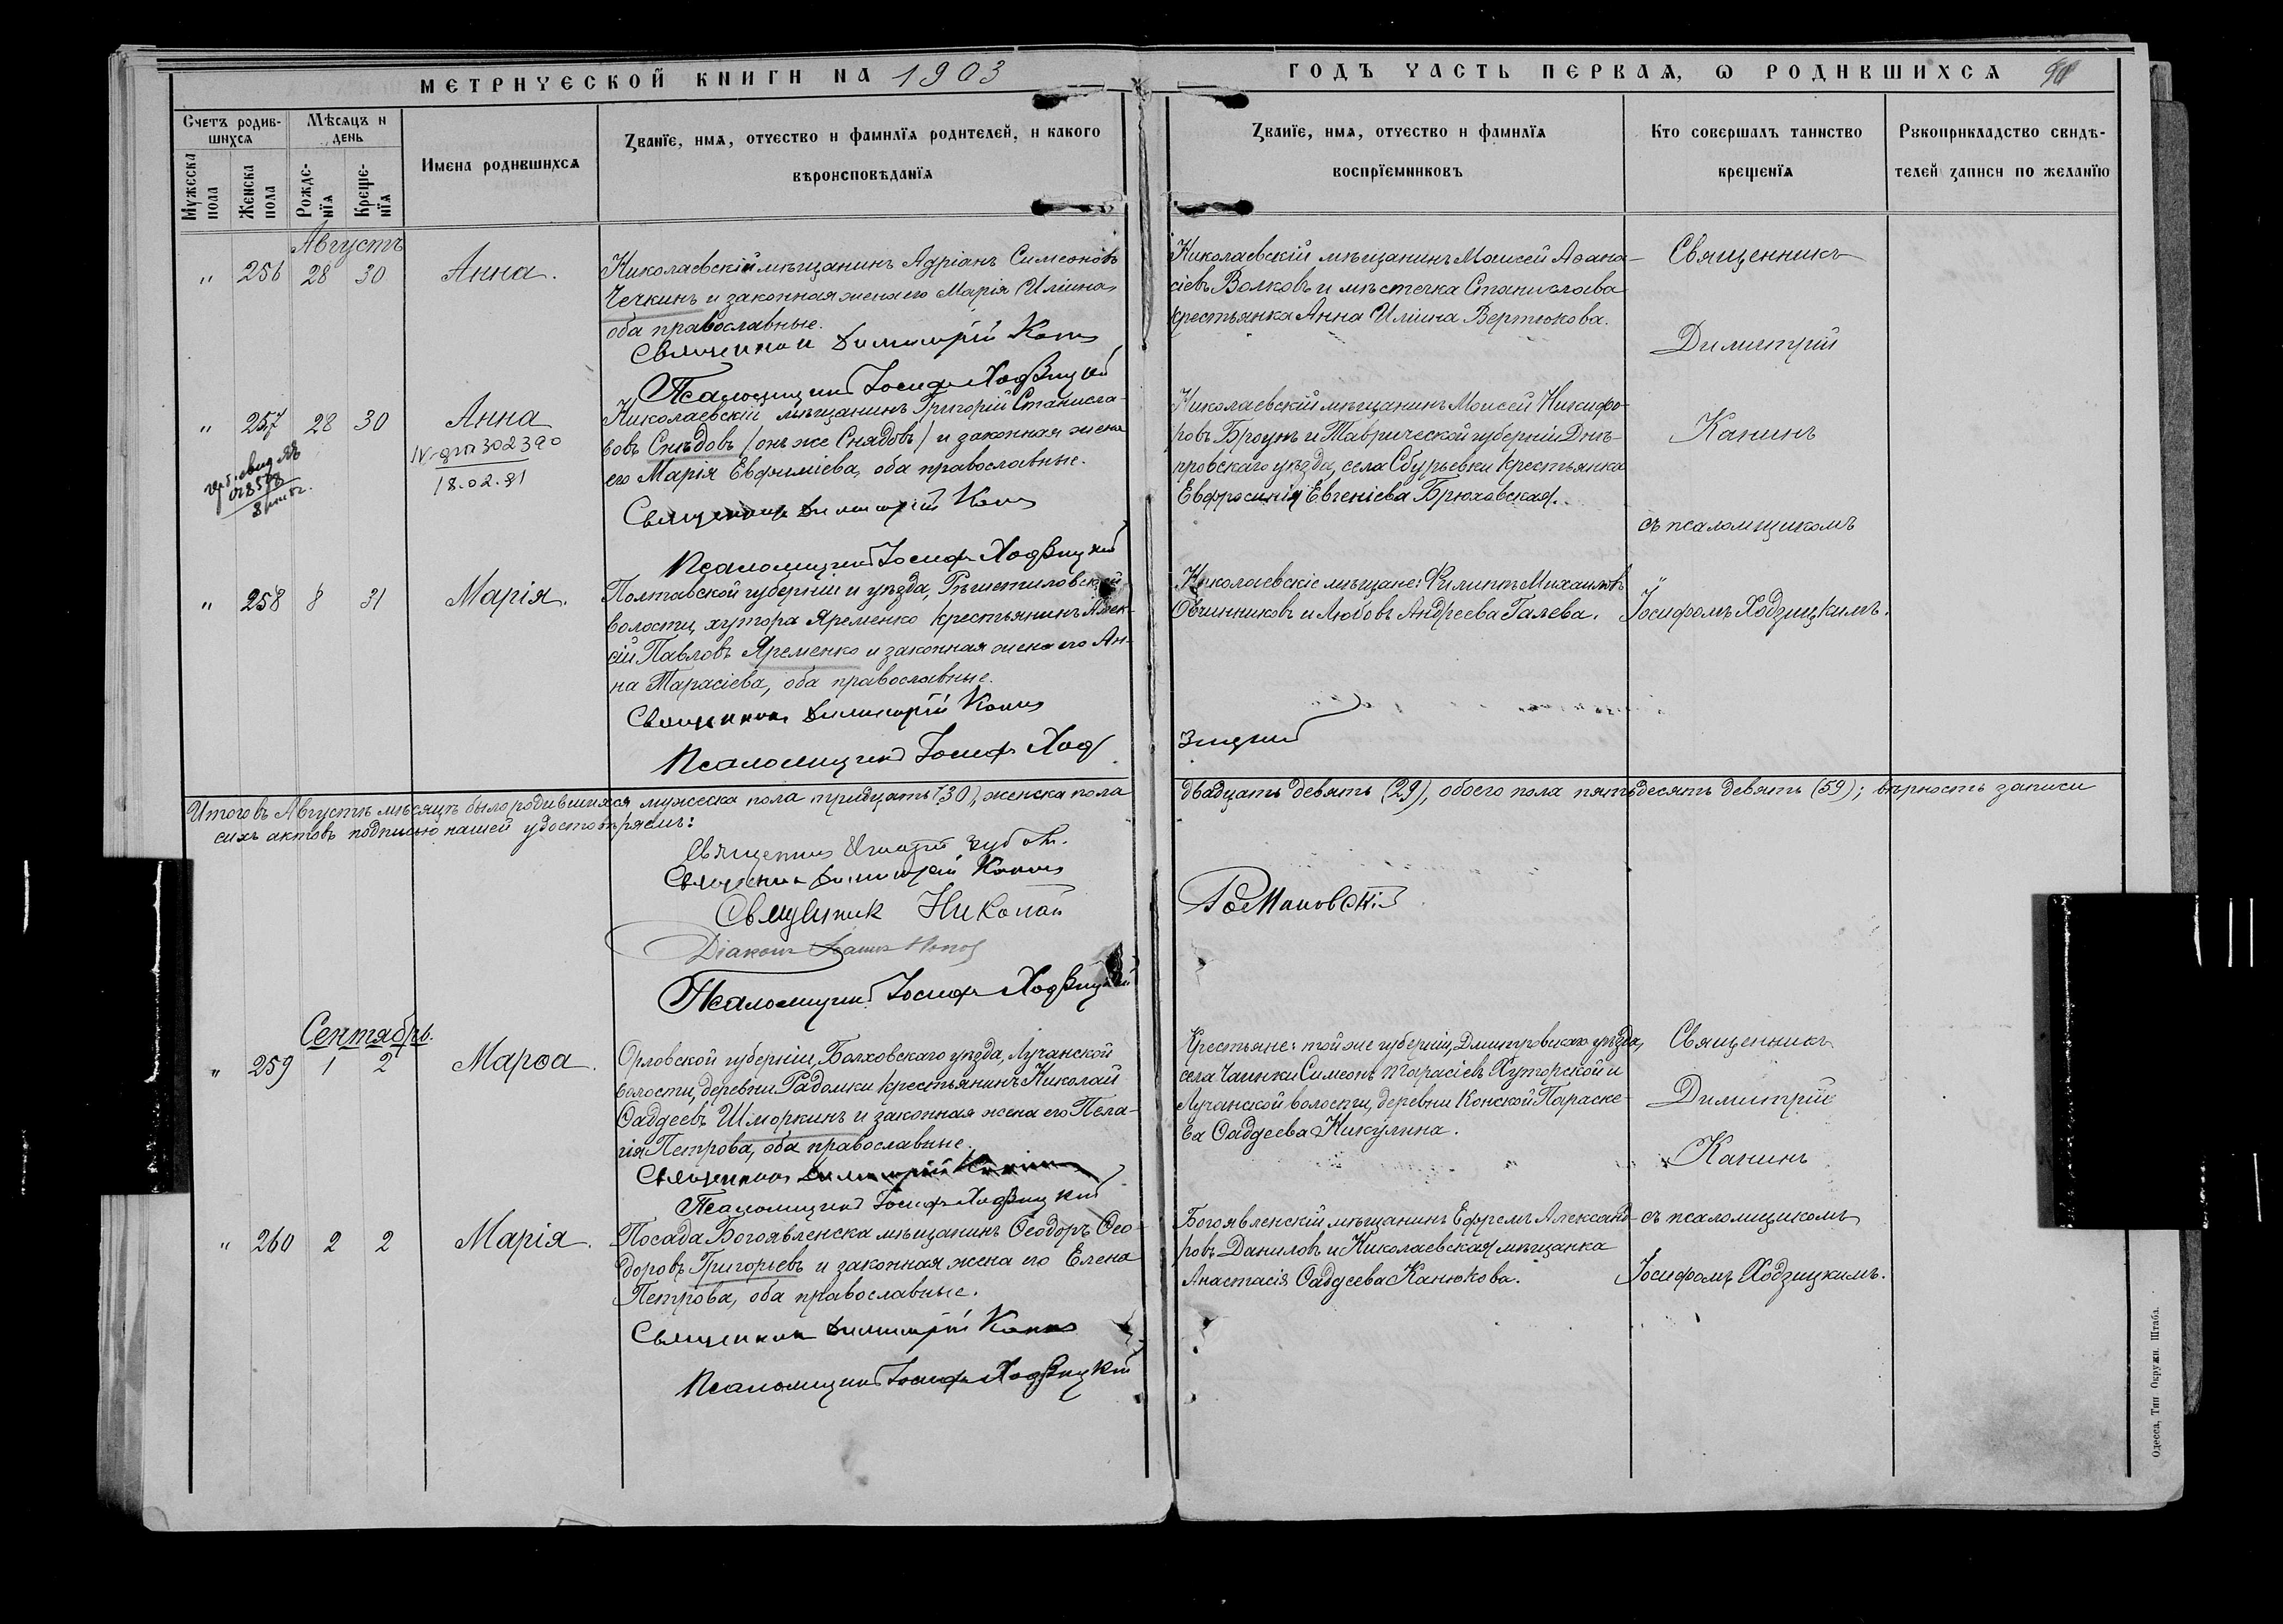 МЕТРИЧЕСКОЙ КНИГИ НА 1903
ГОДЪ ЧАСТЬ ПЕРВАѦ, Ѡ РОДИВШИХСѦ
Счетъ родив-
шихсѧ
Мѣсѧцъ и
день
Мужеска
пола
Женска
пола
Рожде-
нїѧ
Креще-
нїѧ
Имена родившихсѧ
Званїе, имѧ, отчество и фамилїѧ родителей, и какого
вѣроисповѣданїѧ
Званїе, имѧ, отчество и фамилїѧ
воспрїемниковъ
Кто совершалъ таинство
крещенїѧ
Рꙋкоприкладство свидѣ-
телей записи по желанїю
Августъ
" 256 28 30 Анна.
Николаевскій мѣщанинъ Адріанъ Симеоновъ
Чечкинъ и законная жена его Марія Иліина,
оба православные.
Священникъ Димитрій Канинъ
Псаломщикъ Іосифъ Ходзицкій
Николаевскій мѣщанинъ Моисей Аѳана-
сіевъ Волковъ и мѣстечка Станислава
крестьянка Анна Иліина Вертюкова.
Священникъ
Димитрій
" 257 28 30 Анна
IV-ЯП 302390
18.02.91
8
Николаевскій мѣщанинъ Григорій Станисла-
вовъ Снѣдовъ (онъ же Снядовъ) и законная жена
его Марія Евфиміева, оба православные.
Священникъ Димитрій Канинъ
Псаломщикъ Іосифъ Ходзицкій
Николаевскій мѣщанинъ Моисей Никифо-
ровъ Броунъ и Таврической губерніи Днѣ-
провскаго уѣзда, села Сбурьевки крестьянка
Евфросинія Евгеніева Брюховская.
Канинъ
съ псаломщикомъ
" 258 8 31 Марія.
Полтавской губерніи и уѣзда, Рѣшетиловской
волости, хутора Яременко крестьянинъ Алек-
сій Павловъ Яременко и законная жена его Ан-
на Тарасіева, оба православные.
Священникъ Димитрій Канинъ
Псаломщикъ Іосифъ Ход
зицкій
Николаевскіе мѣщане: Филиппъ Михаиловъ
Овчинниковъ и Любовь Андреева Галева.
Іосифомъ Ходзицкимъ.
Итого въ Августѣ мѣсяцѣ было родившихся мужеска пола тридцать (30), женска пола
двадцать девять (29), обоего пола пятьдесятъ девять (59); вѣрность записи
сихъ актовъ подписью нашей удостовѣряемъ:
Священникъ
Священникъ Димитрій Канинъ
Священник Николай
Романовскій
Діаконъ
Псаломщикъ Іосифъ Ходзицкій
Сентябрь.
" 259 1 2 Марѳа.
Орловской губерніи, Болховскаго уѣзда, Лучанской
волости, деревни Радомки крестьянинъ Николай
Ѳаддеевъ Шморкинъ и законная жена его Пела-
гія Петрова, оба православные.
Священникъ Димитрій Канинъ
Псаломщикъ Іосифъ Ходзицкій
Крестьяне: той же губерніи, Дмитровскаго уѣзда,
села Чаинки Симеонъ Тарасіевъ Хуторской и
Лучанской волости, деревни Конской Параске-
ва Ѳаддеева Никулина.
Священникъ
Димитрій
Канинъ
" 260 2 2 Марія.
Посада Богоявленска мѣщанинъ Ѳеодоръ Ѳео-
доровъ Григорьевъ и законная жена его Елена
Петрова, оба православные.
Священникъ Димитрій Канинъ
Псаломщикъ Іосифъ Ходзицкій
Богоявленскій мѣщанинъ Ефремъ Александ-
ровъ Даниловъ и Николаевская мѣщанка
Анастасія Ѳаддеева Канюкова.
съ псаломщикомъ
Іосифомъ Ходзицкимъ.
Одесса, Тип Окружн. Штаба.